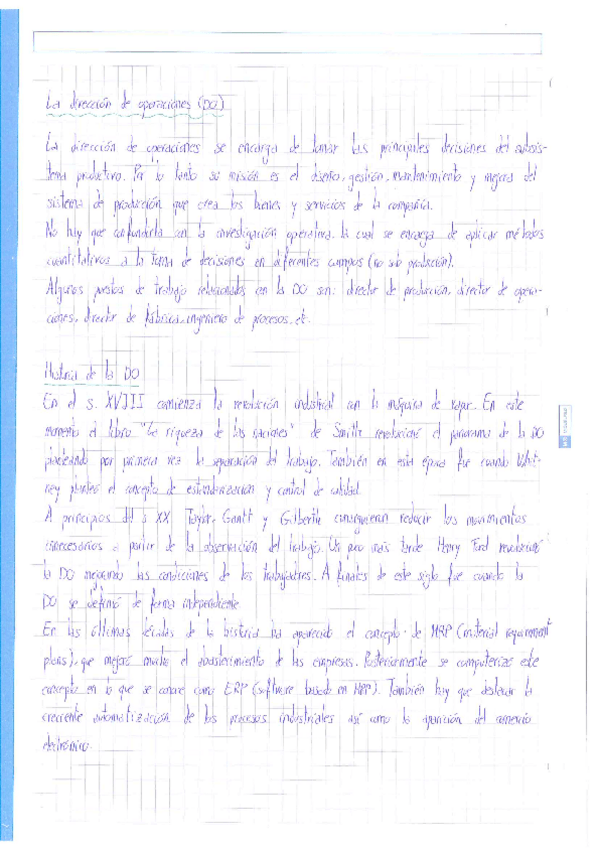 La dirección de operaciones (DO)
La dirección de operaciones se encarga de tomar las principales decisiones del subsis-
tema productivo. Por lo tanto su misión es el diseño, gestión, mantenimiento y mejora del
sistema de producción que crea los bienes y servicios de la compañía.
No hay que confundirla con la investigación operativa, la cual se encarga de aplicar métodos
cuantitativos a la toma de decisiones en diferentes campos (no solo producción).
Algunos puestos de trabajo relacionados con la DO son: director de producción, director de opera-
ciones, director de fábrica, ingeniero de procesos, etc.
Historia de la DO
En el s. XVIII comienza la revolución industrial con la máquina de vapor. En este
momento el libro "La riqueza de las naciones" de Smith revolucionó el panorama de la DO
planteando por primera vez la separación del trabajo. También en esta época fue cuando Whit-
ney planteó el concepto de estandarización y control de calidad.
A principios del s XX Taylor, Gantt y Gilberth consiguieron reducir los movimientos
innecesarios a partir de la observación del trabajo. Un poco más tarde Henry Ford revolucionó
la DO mejorando las condiciones de los trabajadores. A finales de este siglo fue cuando la
DO se definió de forma independiente.
En las últimas décadas de la historia ha aparecido el concepto de MRP (material requirement
plans), que mejoró mucho el abastecimiento de las empresas. Posteriormente se computerizó este
concepto en lo que se conoce como ERP (software basado en MRP). También hay que destacar la
creciente automatización de los procesos industriales así como la aparición del comercio
electrónico.